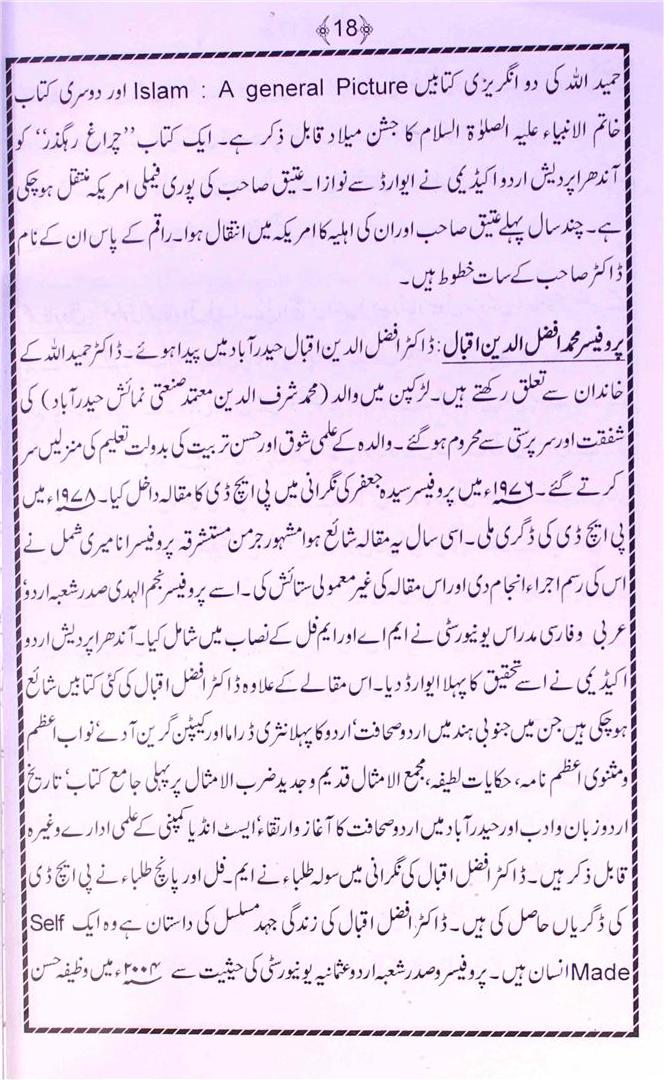 18
حمید اللہ کی دو انگریزی کتابیں Islam : A general Picture اور دوسری کتاب
خاتم الانبیاء علیہ الصلوٰۃ السلام کا جشن میلاد قابل ذکر ہے۔ ایک کتاب ’’چراغ رہگذر‘‘ کو
آندھرا پردیش اردو اکیڈیمی نے ایوارڈ سے نوازا۔ عتیق صاحب کی پوری فیملی امریکہ منتقل ہو چکی
ہے۔ چند سال پہلے عتیق صاحب اور ان کی اہلیہ کا امریکہ میں انتقال ہوا۔ راقم کے پاس ان کے نام
ڈاکٹر صاحب کے سات خطوط ہیں۔
پروفیسر محمد افضل الدین اقبال: ڈاکٹر افضل الدین اقبال حیدرآباد میں پیدا ہوئے۔ ڈاکٹر حمید اللہ کے
خاندان سے تعلق رکھتے ہیں۔ لڑکپن میں والد (محمد شرف الدین معتمد صنعتی نمائش حیدرآباد) کی
شفقت اور سرپرستی سے محروم ہو گئے۔ والدہ کے علمی شوق اور حسن تربیت کی بدولت تعلیم کی منزلیں سر
کرتے گئے۔ ۱۹۷۶ء میں پروفیسر سیدہ جعفر کی نگرانی میں پی ایچ ڈی کا مقالہ داخل کیا۔ ۱۹۷۸ء میں
پی ایچ ڈی کی ڈگری ملی۔ اسی سال یہ مقالہ شائع ہوا مشہور جرمن مستشرقہ پروفیسر انا میری شمل نے
اس کی رسم اجراء انجام دی اور اس مقالہ کی غیر معمولی ستائش کی۔ اسے پروفیسر نجم الہدی صدر شعبہ اردو‘
عربی و فارسی مدراس یونیورسٹی نے ایم اے اور ایم فل کے نصاب میں شامل کیا۔ آندھرا پردیش اردو
اکیڈیمی نے اسے تحقیق کا پہلا ایوارڈ دیا۔ اس مقالے کے علاوہ ڈاکٹر افضل اقبال کی کئی کتابیں شائع
ہو چکی ہیں جن میں جنوبی ہند میں اردو صحافت‘ اردو کا پہلا نثری ڈراما اور کیپٹن گرین آوے‘ نواب اعظم
و مثنوی اعظم نامہ، حکایات لطیفہ، مجمع الامثال قدیم و جدید ضرب الامثال پر پہلی جامع کتاب‘ تاریخ
اردو زبان و ادب اور حیدرآباد میں اردو صحافت کا آغاز و ارتقاء‘ ایسٹ انڈیا کمپنی کے علمی ادارے وغیرہ
قابل ذکر ہیں۔ ڈاکٹر افضل اقبال کی نگرانی میں سولہ طلباء نے ایم۔فل اور پانچ طلباء نے پی ایچ ڈی
کی ڈگریاں حاصل کی ہیں۔ ڈاکٹر افضل اقبال کی زندگی جہد مسلسل کی داستان ہے وہ ایک Self
Made انسان ہیں۔ پروفیسر و صدر شعبہ اردو عثمانیہ یونیورسٹی کی حیثیت سے ۲۰۰۴ء میں وظیفہ حسن